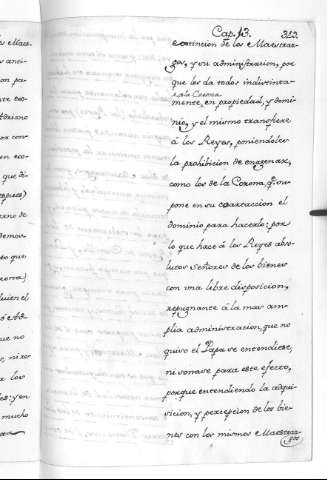 Cap. 13. 312.
extincion de los Maestraz-
gos, y su administracion, por
que los da todos indistinta-
a la Corona
mente, en propiedad, y domi-
nio, y el mismo transfiere
à los Reyes, poniendoles
la prohibicion de enagenar,
como los de la Corona, q.e su-
pone en su coartacion el
dominio para hacerlo: por
lo que hace à los Reyes abso-
lutos Señores de los bienes
con una libre disposicion,
repugnante à la mas am-
plia administracion, que no
quiso el Papa se entendiese,
ni sonase para este efecto,
porque entendiendo la adqui-
sicion, y percepcion de los bie-
nes con los mismos Maestraz-
gos